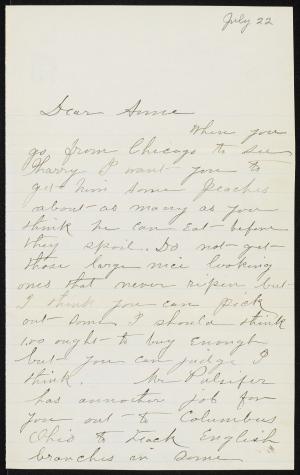 July 22
Dear Anna
When you
go from Chicago to see
Harry I want you to
get him some Peaches
about as many as you
think he can eat before
they spoil. Do not get
those large nice looking
ones that never ripen but
I think you can pick
out some I should think
1.00 ought to buy enough
but you can judge I
think. Mr Pulsifer
has annother job for
you out to Columbus
Ohio to track English
branches in some